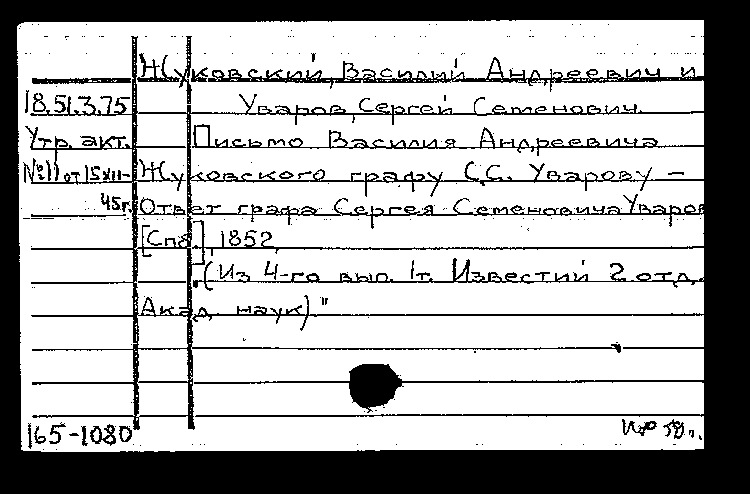 Жуковский, Василий Андреевич и
18.51.3.75 Уваров, Сергей Семенович.
Утр. акт. Письмо Василия Андреевича
№11 от 15 XII- Жуковского графу С.С. Уварову –
45г. Ответ графа Сергея Семеновича Уваров
[Спб], 1852.
(Из 4-го вып. 1т. Известий 2 отд.
Акад. наук)."
165-1080